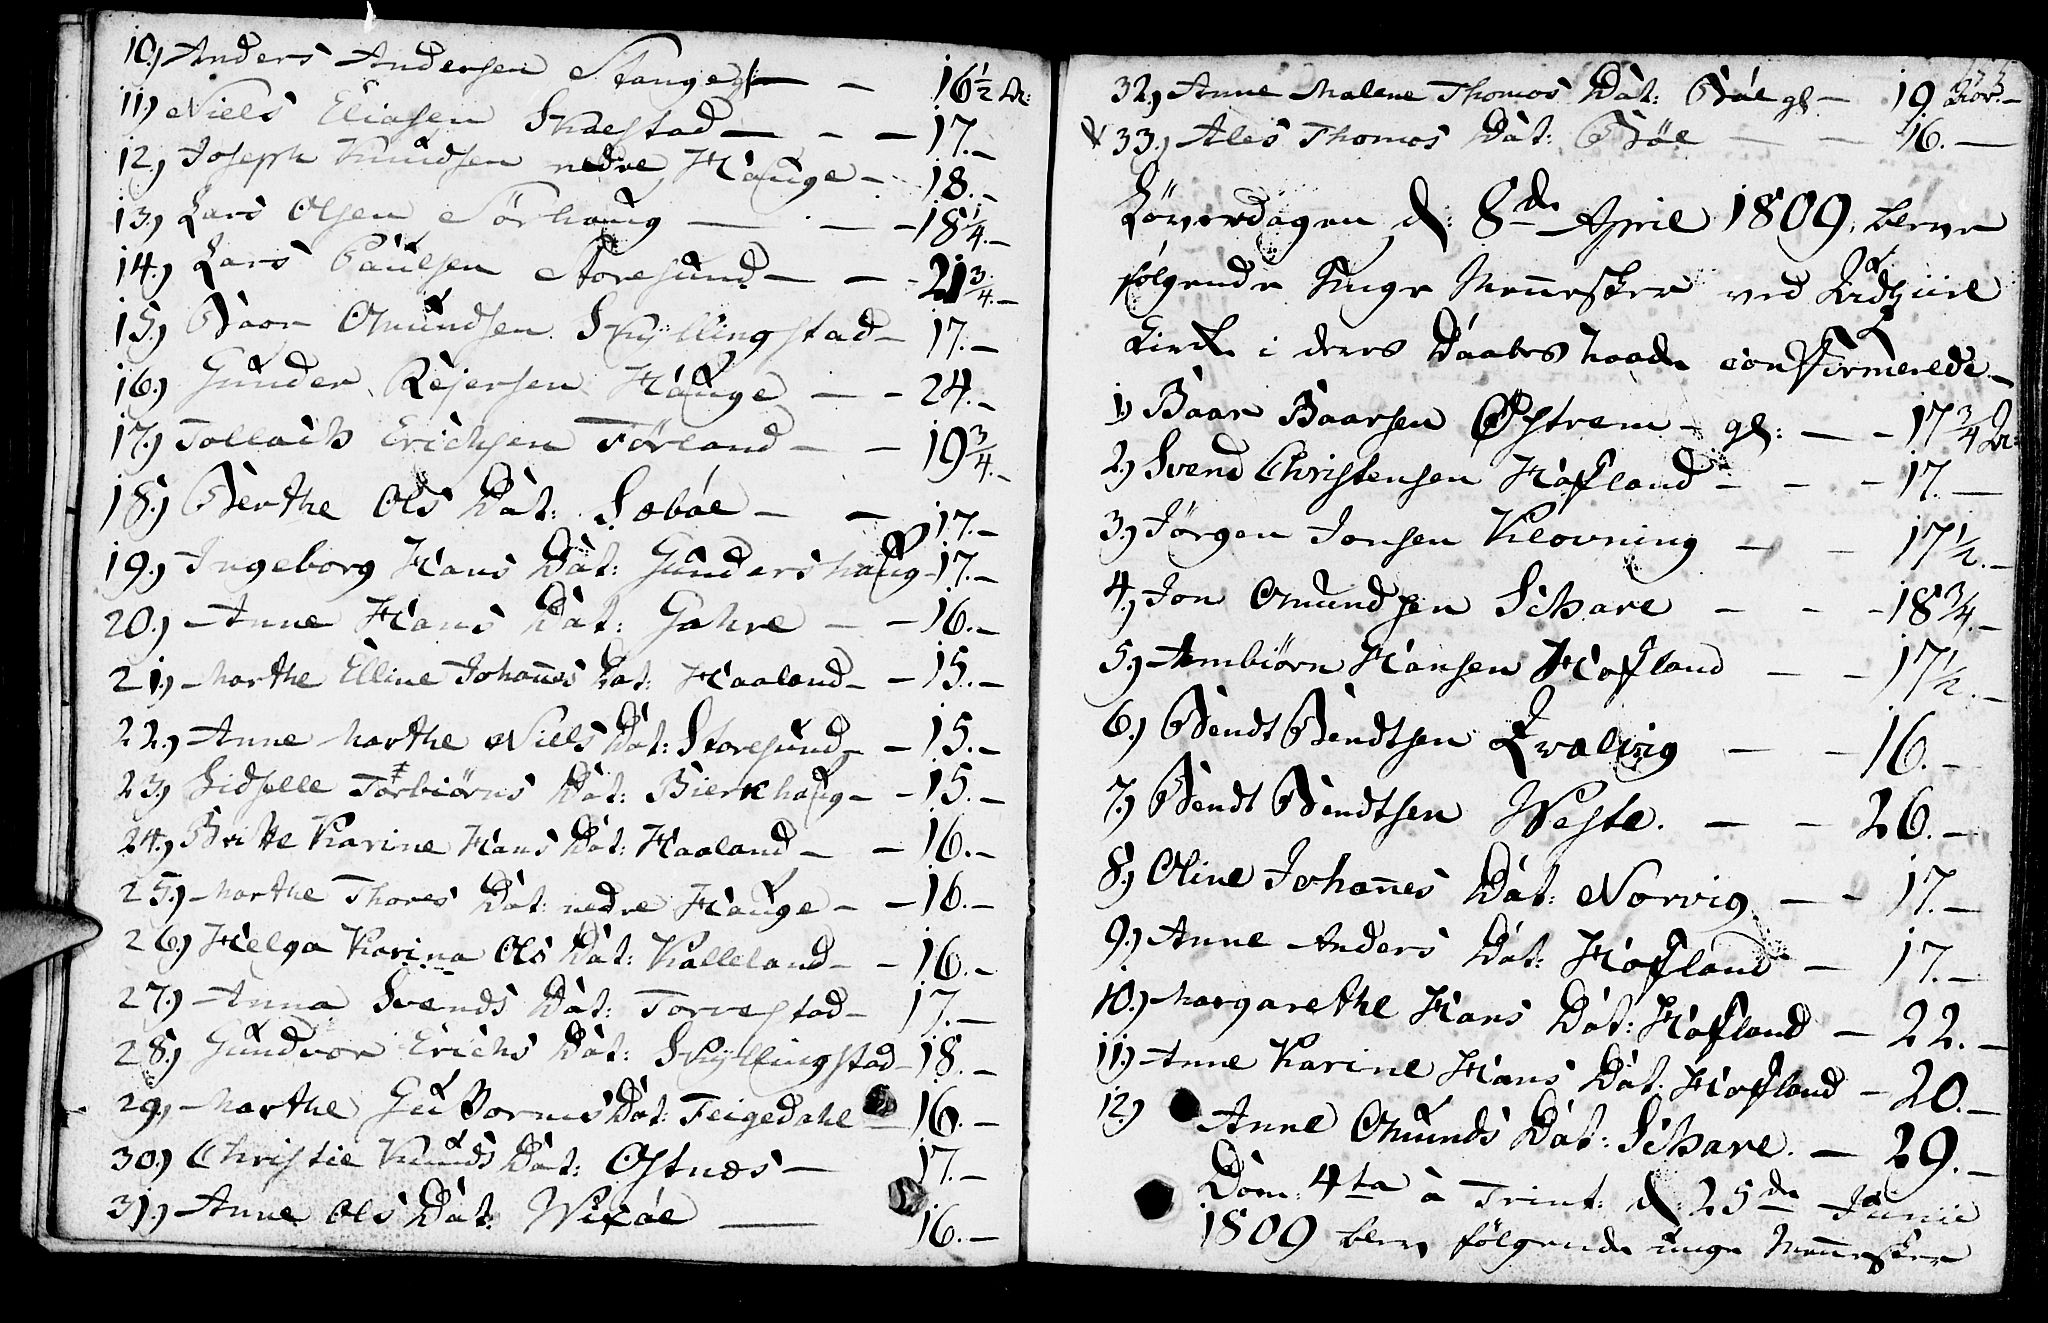 10.) Anders Andersen Stange — — 16 1/2 Ar:
11.) Niels Eliasen Skaestad — — — 17.—
12.) Joseph Knudsen nedre Hauge — 18.—
13.) Lars Olsen Nörhaug — — — 18 1/4.—
14.) Lars Paulsen Storesund — — — 21 3/4.—
15.) Baar Omundsen Skyllingstad — 17.—
16.) Gunder Rejersen Hauge — — 24.—
17.) Tollach Erichsen Förland — — 19 3/4.—
18.) Berthe Ols Dat: Sæböe — — 17.—
19.) Ingeborg Hans Dat: Gundershaug — 17.—
20.) Anne Hans Dat: Gahre — — 16.—
21.) Marthe Elline Johañes Dat: Haaland — — 15.—
22.) Anne Marthe Niels Dat: Storesund — — 15.—
23.) Sidselle Torbiörns Dat: Bierkhaug — — 15.—
24.) Britte Karine Hans Dat: Haaland — — 16.—
25.) Marthe Thores Dat: nedre Hauge — — 16.—
26.) Helga Karina Ols Dat: Kalleland — — 16.—
27.) Anna Svends Dat: Torvestad — 17.—
28.) Gundvor Erichs Dat: Skyllingstad — 18.—
29.) Marthe Guttorms Dat: Feigedahl — 16.—
30.) Christie Knuds Dat: Ostnæs — 17.—
31.) Anne Ols Dat: Wixöe — 16.—
32.) Anne Malene Thomos Dat: Böe gl — 19 Aar.—
33.) Ales Thomos Dat: Böe — — 16.—
Löverdagen d: 8de April 1809, bleve
følgende Unge Meñesker ved
Kirke i deres Daabes Naade confirmerede.—
1.) Baar Baarsen Østrem — gl: — — 17 3/4 Ar:
2.) Svend Christensen Hafland — — — 17.—
3.) Jørgen Jonsen Klovning — — 17 1/2.—
4.) Jon Omundsen Schare — — — 18 3/4.—
5.) Arnbiörn Hansen Hafland — — 17 1/2.—
6.) Bendt Bendtsen Qvalvig — — 16.—
7.) Bendt Bendtsen Weste. — — 26.—
8.) Oline Johañes Dat: Norvig — — 17.—
9.) Anne Anders Dat: Hafland — 17.—
10.) Margarethe Hans Dat: Hafland — 22.—
11.) Anne Karine Hans Dat: Hafland — 20.—
12.) Anne Omunds Dat: Schare. — 29.—
Dom: 4ta à Trint: d: 25de Junii
1809 blev følgende unge Meñesker